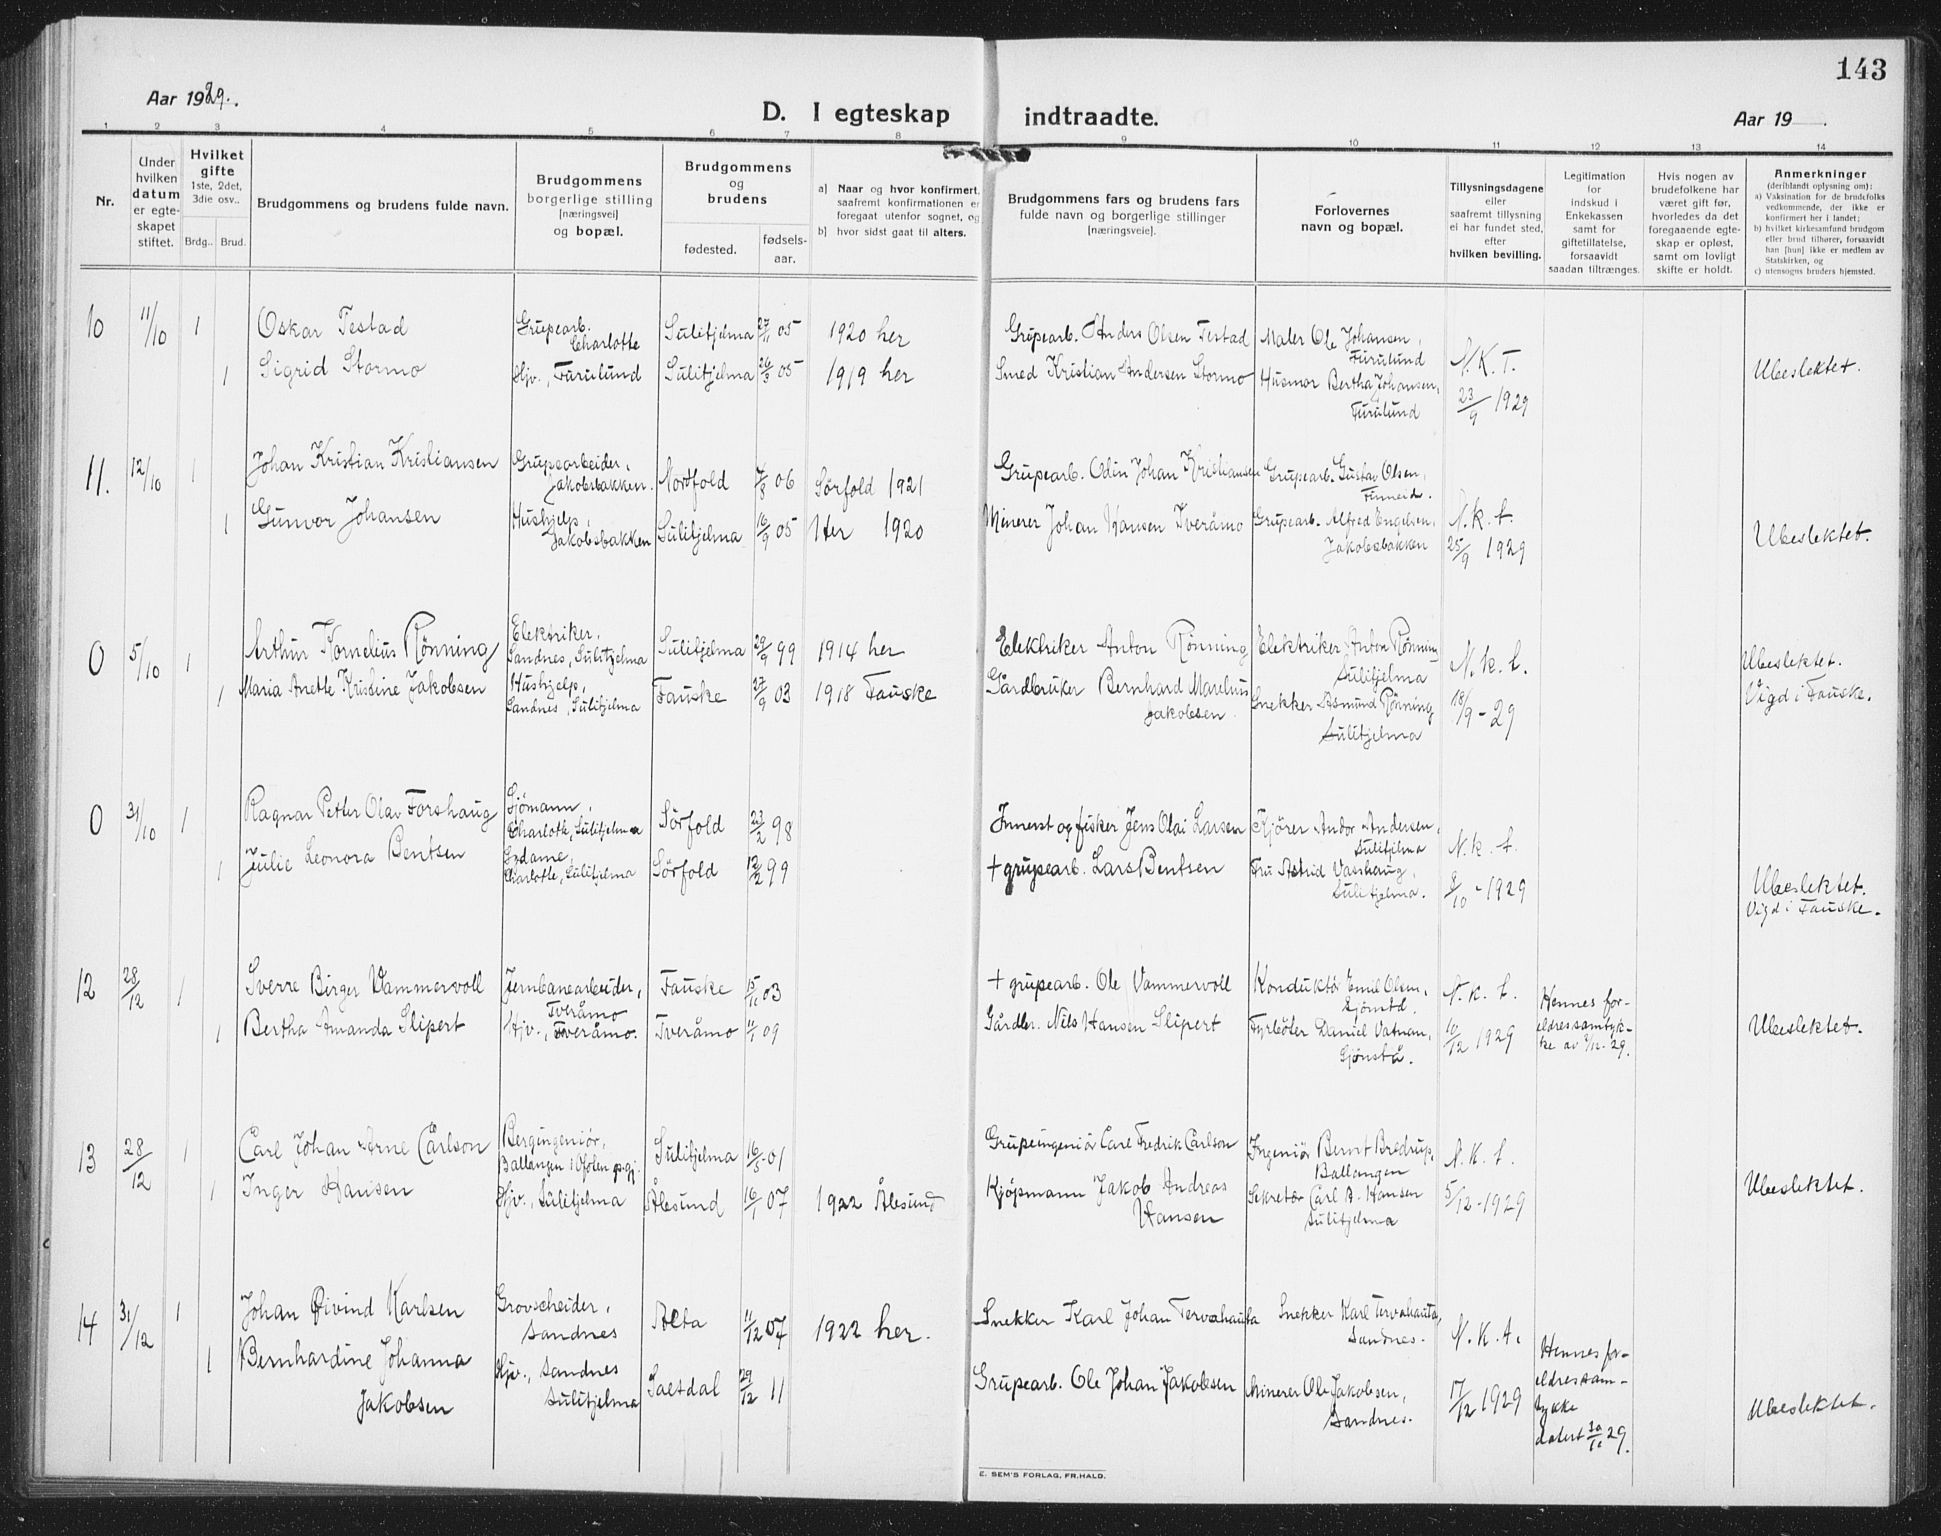 143
Aar 1929.
D. I egteskap indtraadte.
Aar 19 .
1 2 3 4 5 6 7 8 9 10 11 12 13 14
Nr.
Under hvilken datum er egteskapet stiftet.
Hvilket gifte
1ste, 2det, 3die osv..
Brdg.. Brud.
Brudgommens og brudens fulde navn.
Brudgommens borgerlige stilling [næringsvei] og bopæl.
Brudgommens og brudens
fødested.
fødsels-aar.
a) Naar og hvor konfirmert, saafremt konfirmationen er foregaat utenfor sognet, og
b) hvor sidst gaat til alters.
Brudgommens fars og brudens fars fulde navn og borgerlige stillinger [næringsveie].
Forlovernes navn og bopæl.
Tillysningsdagene eller saafremt tillysning ei har fundet sted, efter hvilken bevilling.
Legitimation for indskud i Enkekassen samt for giftetillatelse, forsaavidt saadan tiltrænges.
Hvis nogen av brudefolkene har været gift før, hvorledes da det foregaaende egteskap er opløst, samt om lovligt skifte er holdt.
Anmerkninger
(deriblandt oplysning om):
a) Vaksination for de brudefolks vedkommende, der ikke er konfirmert her i landet;
b) hvilket kirkesamfund brudgom eller brud tilhører, forsaavidt han [hun] ikke er medlem av Statskirken, og
c) utensogns bruders hjemsted.
10 11/10 1 Oskar Testad Grupearb. Charlotte Sulitjelma 27/11 05 1920 her Grupearb. Anders Olsen Testad Maler Ole Johansen, Furulund
1 Sigrid Stormo Hjv., Furulund Sulitjelma 26/3 05 1919 her Smed Kristian Andersen Stormo Husmor Bertha Johansen, Furulund N.K.T. 23/9 1929 Ubeslektet.
11. 12/10 1 Johan Kristian Kristiansen Grupearbeider, Jakobsbakken. Nordfold 7/8 06 Sørfold 1921 Grupearb. Odin Johan Kristiansen Grupearb. Gustav Olsen, Finneid.
1 Gunvor Johansen Hushjelp, Jakobsbakken Sulitjelma 16/9 05 Her 1920 Minerer Johan Hansen Tveråmo Grupearb. Alfred Engelsen, Jakobsbakken N.k.t. 25/9 1929 Ubeslektet.
0 5/10 1 Arthur Kornelius Rønning Elektriker, Sandnes, Sulitjelma Sulitjelma 29/9 99 1914 her Elektriker Anton Rønning Elektriker Anton Rønning Sulitjelma
1 Maria Anette Kristine Jakobsen Hushjelp, Sandnes, Sulitjelma Fauske 27/9 03 1918 Fauske Gårdbruker Bernhard Marelius Jakobsen Snekker Asmund Rønning Sulitjelma N.k.t. 18/9 - 29 Ubeslektet. Vigd i Fauske.
0 31/10 1 Ragnar Petter Olav Forshaug Sjømann, Charlotte, Sulitjelma Sørfold 23/2 98 Innerst og fisker Jens Olai Larsen Kjører Andor Andersen, Sulitjelma
1 Julie Leonora Bentsen Charlotte, Sulitjelma Sørfold 12/2 99 + grupearb. Lars Bentsen Fru Astrid Vasshaug, Sulitjelma. N.k.t. 8/10 - 1929 Ubeslektet. Vigd i Fauske.
12 28/12 1 Sverre Birger Vammervoll Jernbanearbeider, Tveråmo Fauske 15/11 03 + grupearb. Ole Vammervoll Konduktør Emil Olsen,
1 Bertha Amanda Slipert Hjv., Tveråmo. Tveråmo 11/1 09 Gårdbr. Nils Hansen Slipert Fyrbøter Daniel Vatnan, Sjønstå. N.k.t. 10/12 1929 Hennes foreldres samtykke av 3/12-29. Ubeslektet.
13 28/12 1 Carl Johan Arne Carlson Bergingeniør, Ballangen i Ofoten Sulitjelma 16/5 01 Grupeingeniør Carl Fredrik Carlson Ingeniør Bernt Bredrup, Ballangen
1 Inger Hansen Hjv., Sulitjelma Ålesund 16/1 07 1922 Ålesund Kjøpmann Jakob Andreas Hansen Sekretær Carl B. Hansen Sulitjelma N.K.t. 5/12 - 1929 Ubeslektet.
14 31/12 1 Johan Øivind Karlsen Grovscheider, Sandnes Alta 11/12 07 1922 her. Snekker Karl Johan Tervahauta Snekker Karl Tervahauta, Sandnes.
1 Bernhardine Johanna Jakobsen Hjv., Sandnes Sulitjelma Saltdal 29/12 11 Grupearb. Ole Johan Jakobsen Minerer Ole Jakobsen, Sandnes. N.K.t. 17/12 1929 Hennes foreldres samtykke datert 29. Ubeslektet.
E. SEM'S FORLAG, FR.HALD.